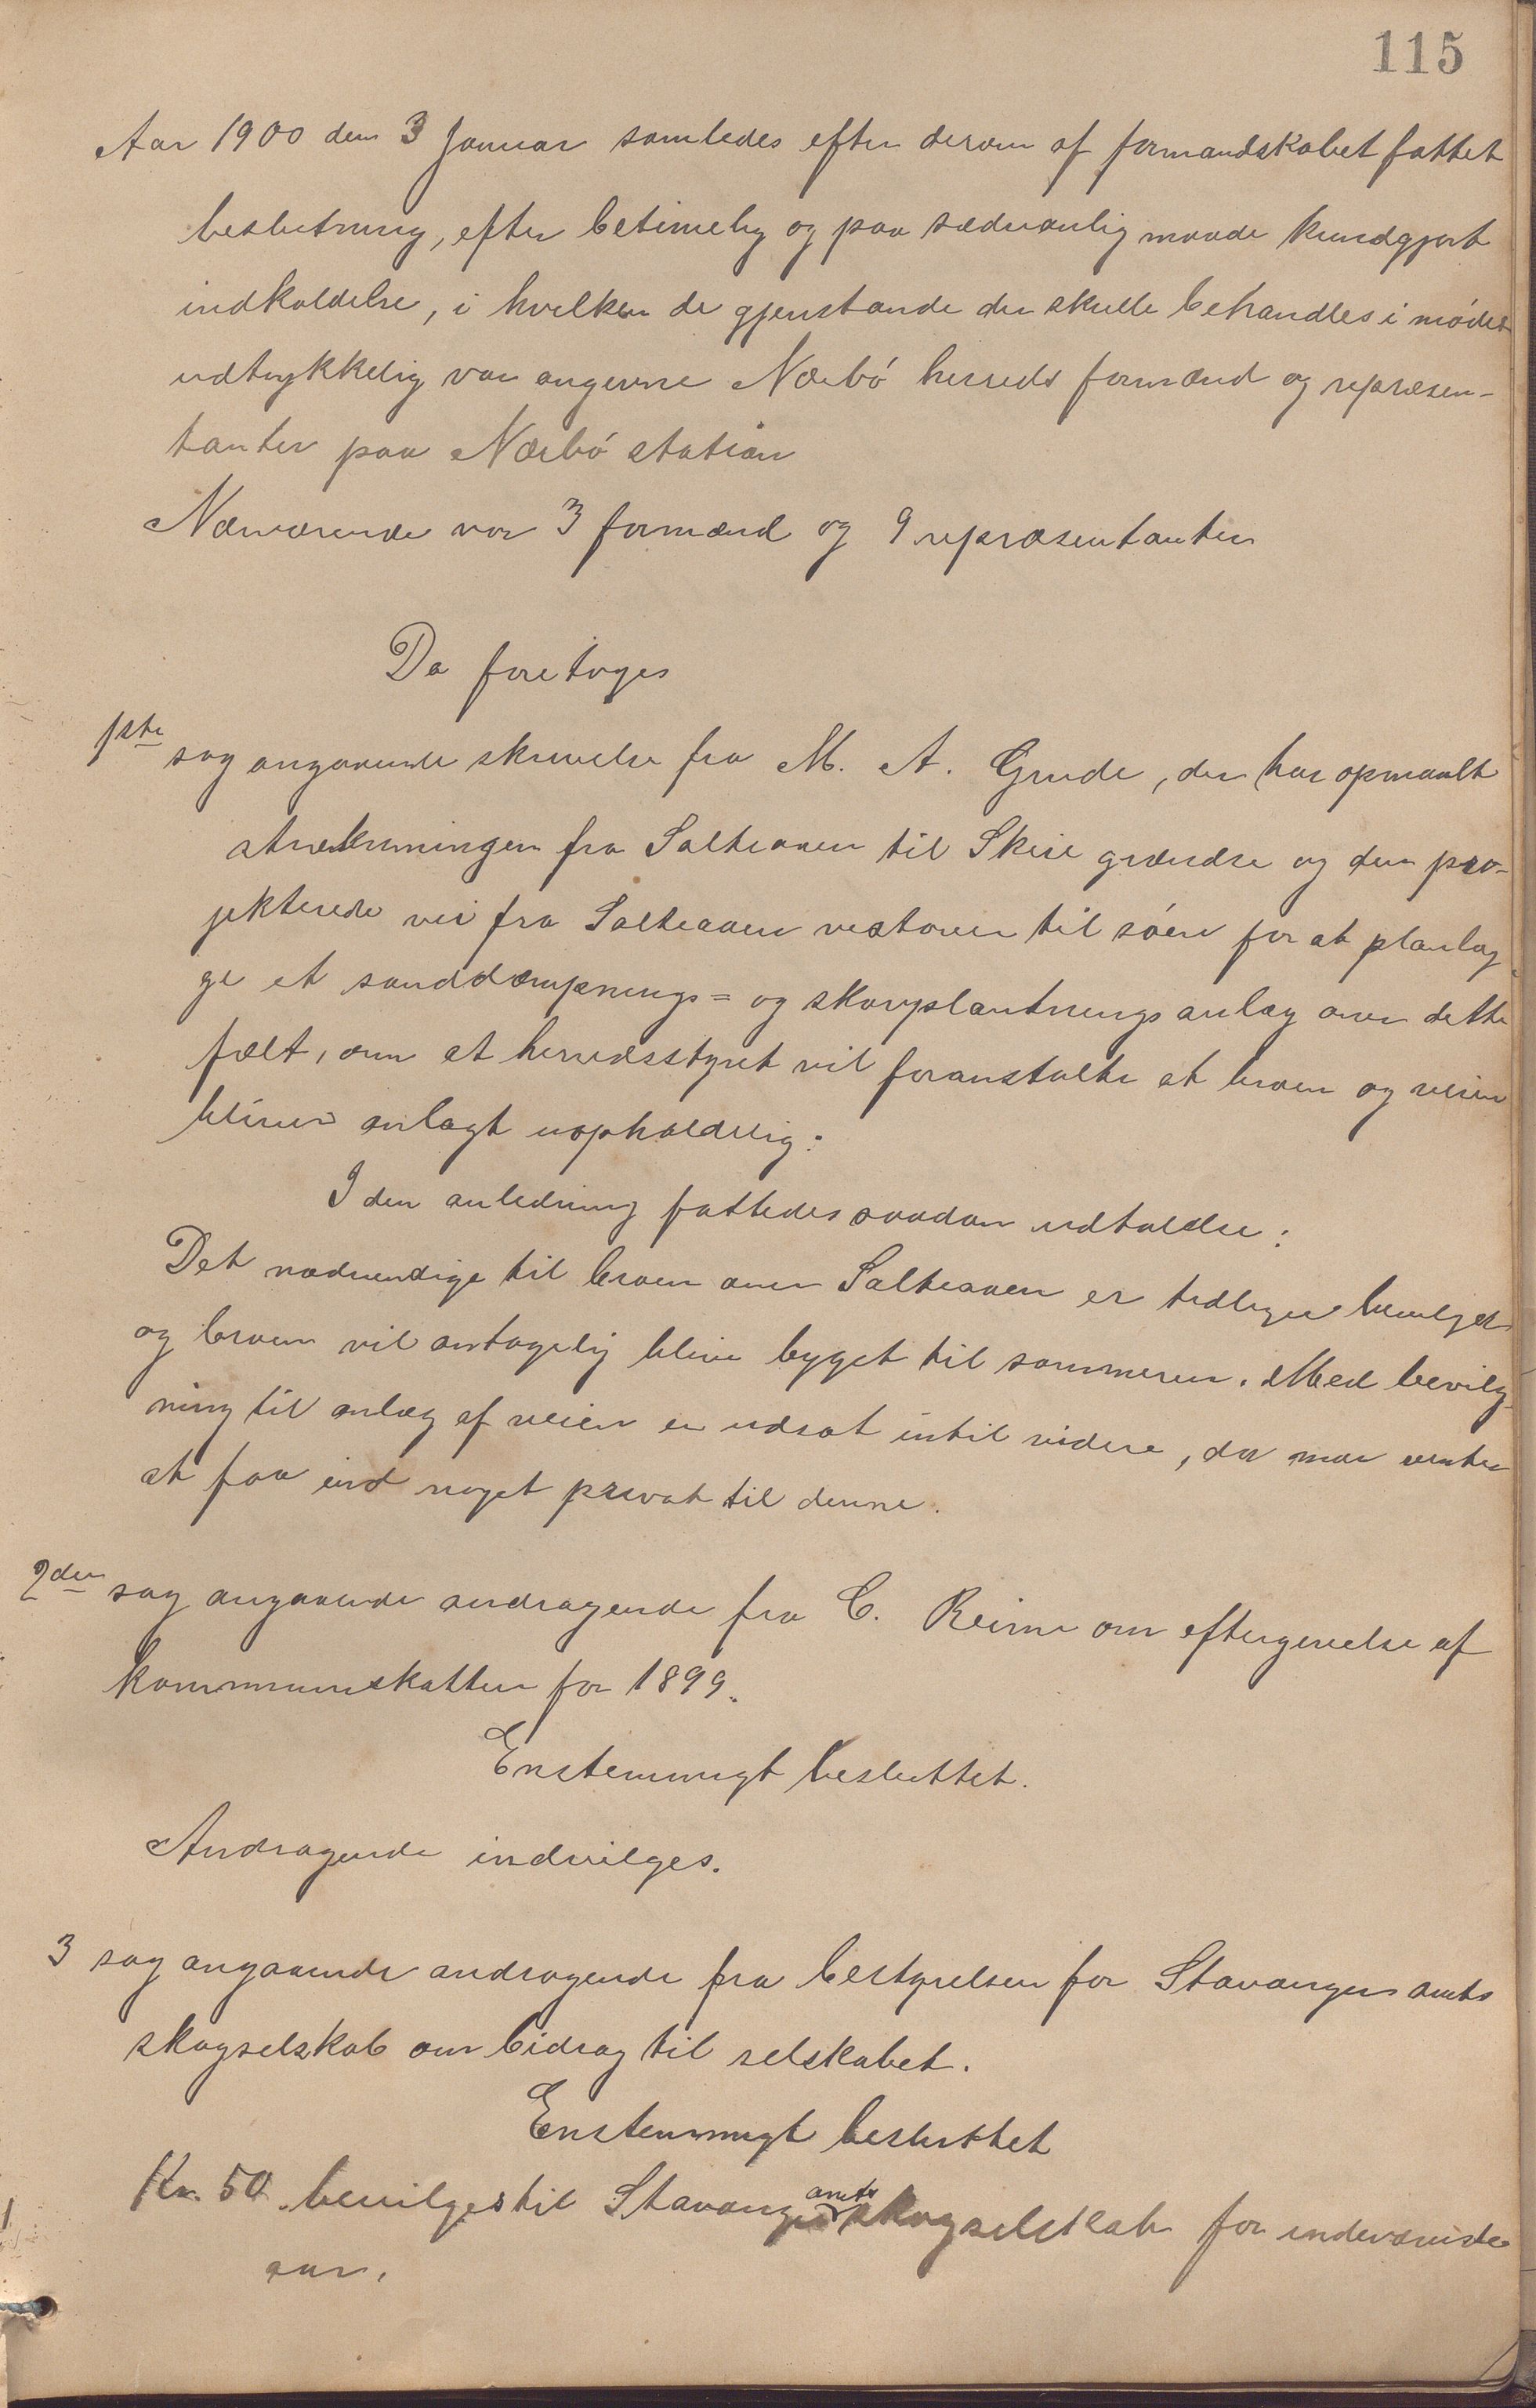 115
Aar 1900 den 3 Januar samledes efter derom af formandskabet fattet
beslutning, efter betimelig og paa sædvanlig maade kundgjort
indkaldelse, i hvilken de gjenstande der skulle behandles i mødet
udtrykkelig var angivne Nærbø herreds formænd og repræsen-
tanter paa Nærbø station
Nærværende var 3 formænd og 9 repræsentanter
Da foretoges
1ste sag angaaende skrivelse fra M. A. Grude, der har opmaalt
strækningen fra Salteaaen til Skeie grændse og den pro-
jekterede vei fra Salteaaen vestover til søen for at planlæg-
ge et sanddæmpnings= og skovplantnings anlæg over dette
fælt, om at herredsstyret vil foranstalte at broen og veien
bliver anlagt uopholdelig:
I den anledning fattedes saadan udtalelse:
Det nødvendige til broen over Salteaaen er tidligere bevilget
og broen vil antagelig blive bygget til sommeren. Med bevilg-
ning til anlæg af veien er udsat intil videre, da man venter
at faa ind noget privat til denne.
2den sag angaaende andragende fra C. Reime om eftergivelse af
kommuneskatten for 1899.
Enstemmigt besluttet.
Andragende indvilges.
3 sag angaaende andragende fra bestyrelsen for Stavanger amts
skogselskab om bidrag til selskabet.
Enstemmigt besluttet
Kr. 50 bevilges til Stavanger amts skogselskab for indeværende
aar.